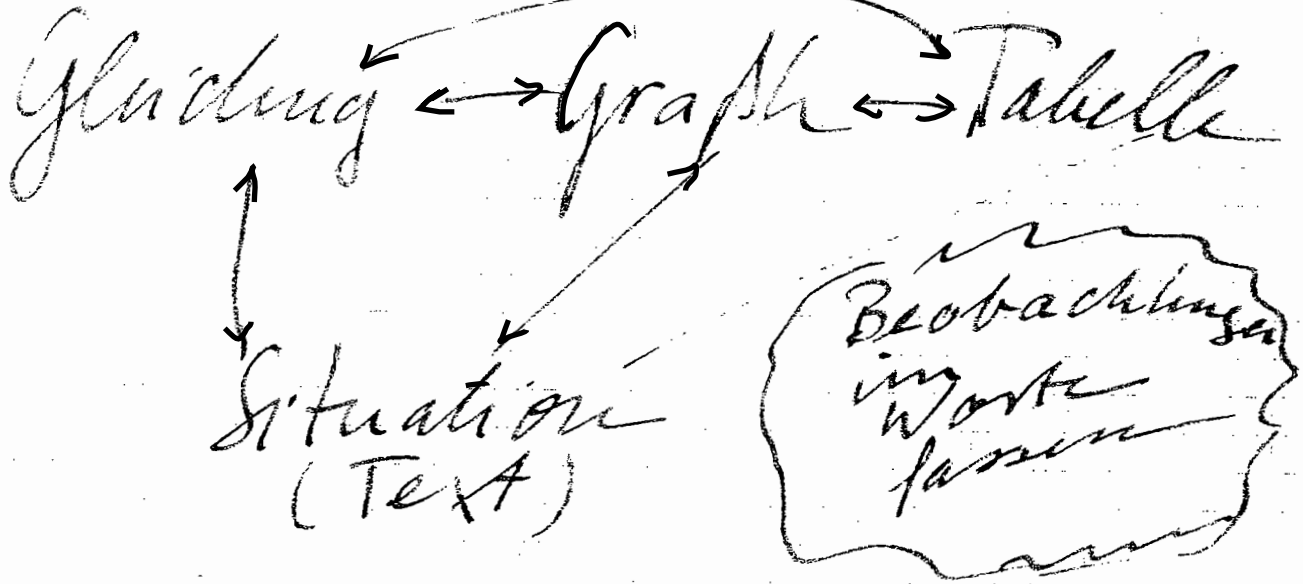 Gleichung Graph Tabelle
Situation
(Text)
Beobachtungen
in
Worte
fassen